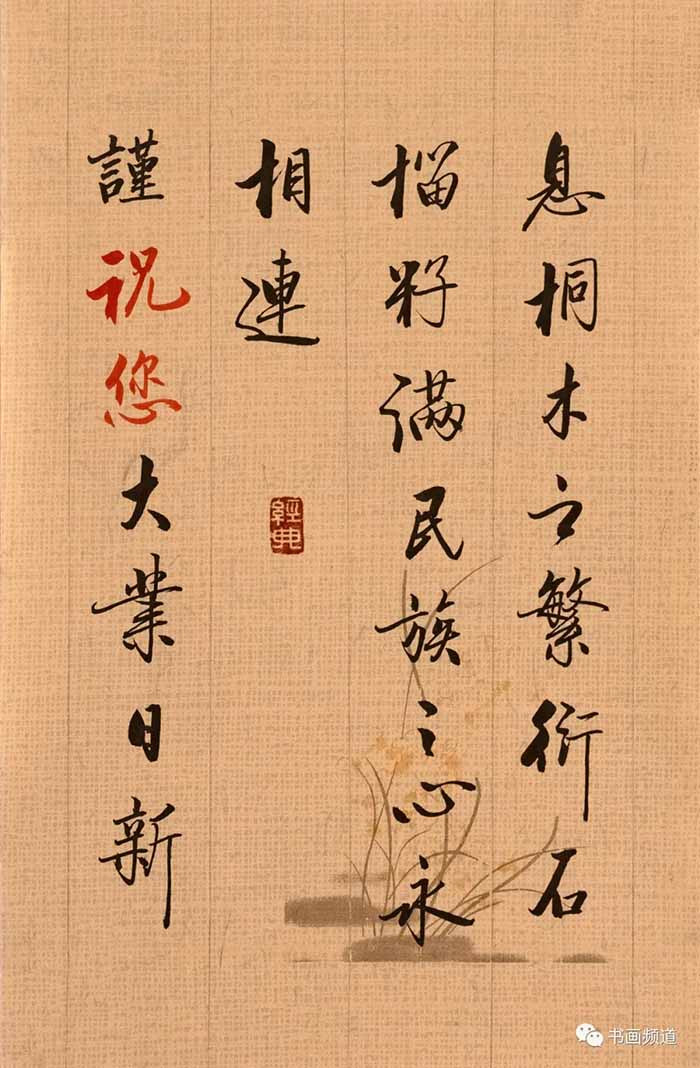 息桐木之繁衍石
榴籽满民族之心永
相連
經典
謹祝您大業日新
书画频道